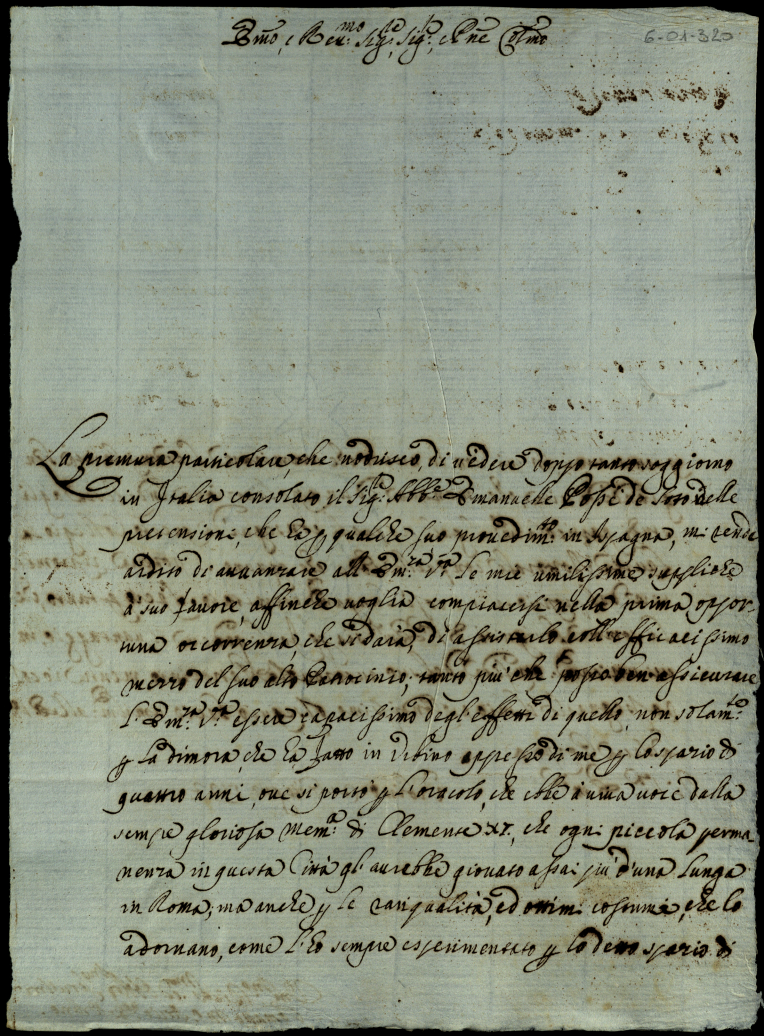 Em̃o, e Reu.mo Sig.re, Sig.r, e Pñe Col̃mo
6-01-320
La premura particolare, che nodrisco, di uedere doppo tanto soggiorno
in Italia consolato il Sig.r Abb.e Emanuelle de Soto delle
pretensione, che hà p qualche suo prouedim.to in Ispagna, mi rende
ardito di auuanzare all'Em.za V.ra le mie umilissime suppliche
à suo fauore, affinche uoglia compiacersi nella prima oppor-
tuna occorrenza, che si darà, di assisterlo coll'efficacissimo
mezzo del suo alto Patrocinio; tanto più che posso ben assicurare
l'Em.za V.ra essere capacissimo degl'effetti di quello, non solam.te
p la dimora, che hà fatto in Urbino appresso di me p lo spazio di
quattro anni, oue si portò p l'oracolo, che ebbe à uiua uoce dalla
sempre gloriosa mem.a di Clemente XI, che ogni piccola perma-
nenza in questa Città gl'aurebbe giouato assai più d'una lunga
in Roma; ma anche p le rare qualità, ed ottimi costumi, che lo
adornano, come l'hò sempre esperimentato p lo detto spazio di